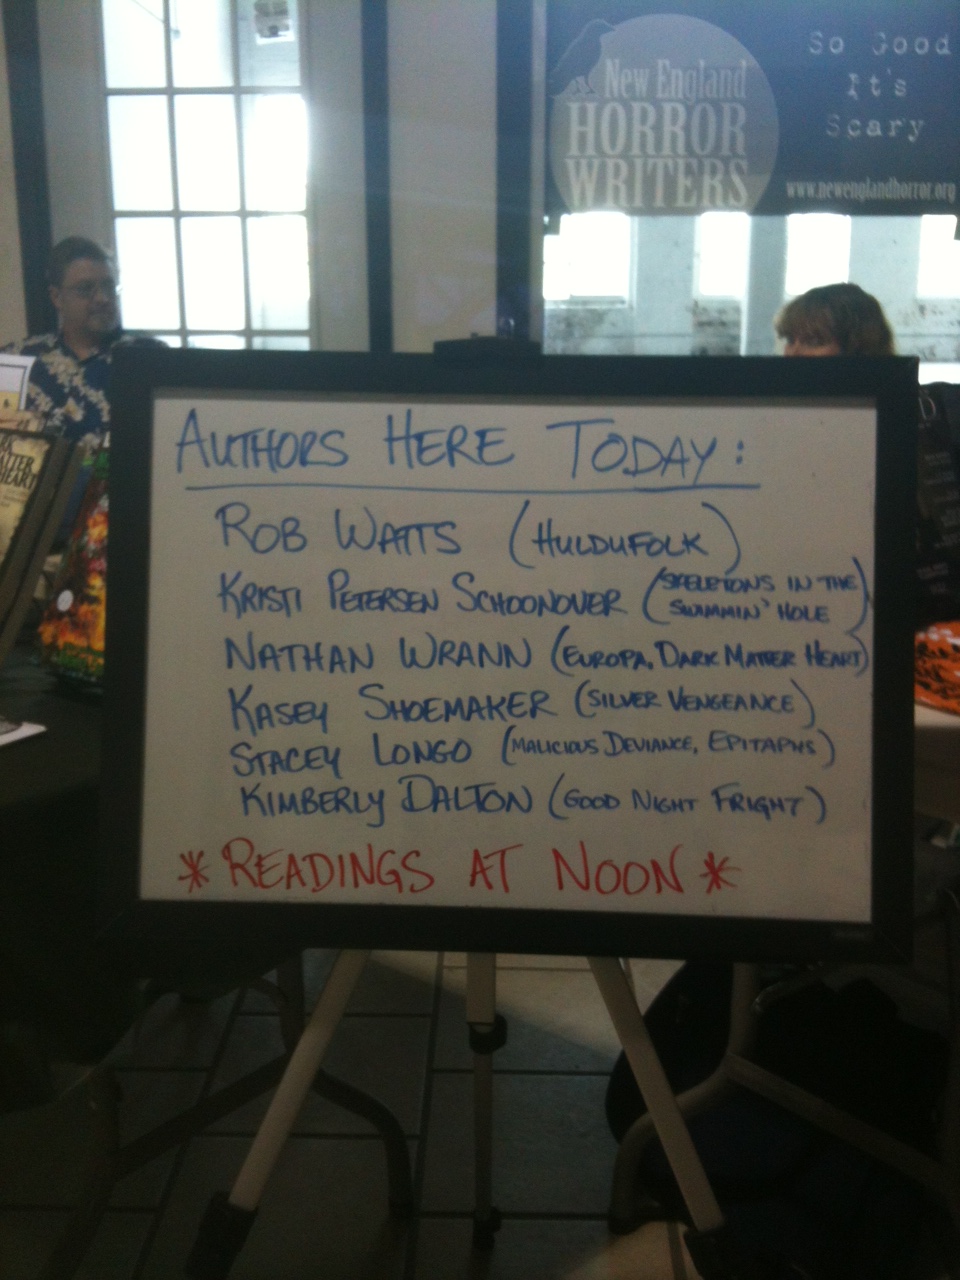 So Good
It's
Scary
New England
HORROR
WRITERS
www.newenglandhorror.org
AUTHORS HERE TODAY:
ROB WATTS (HULDUFOLK)
KRISTI PETERSEN SCHOONOVER (SKELETONS IN THE
SWIMMIN' HOLE)
NATHAN WRANN (EUROPA, DARK MATTER HEART)
KASEY SHOEMAKER (SILVER VENGEANCE)
STACEY LONGO (MALICIOUS DEVIANCE, EPITAPHS)
KIMBERLY DALTON (GOOD NIGHT FRIGHT)
* READINGS AT NOON *
HEART